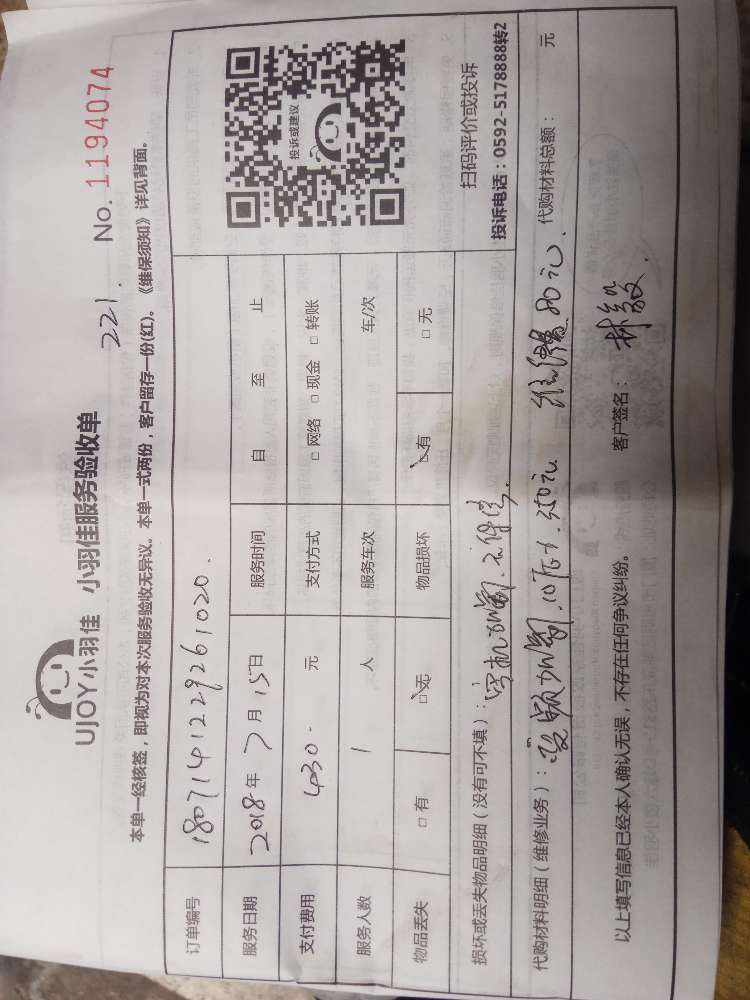 UJOY小羽佳 小羽佳服务验收单
221.
No. 1194074
本单一经核签，即视为对本次服务验收无异议。本单一式两份，客户留存一份(红)。《维保须知》详见背面。
订单编号 180714122926 1020
服务日期 2018年 7月 15日 服务时间 自 至 止
支付费用 430- 元 支付方式 □ 网络 □ 现金 □ 转账
服务人数 1 人 服务车次 车/次
物品丢失 □ 有 □ 无 物品损坏 □ 有 □ 无
投诉或建议
扫码评价或投诉
投诉电话：0592-5178888转2
损坏或丢失物品明细（没有可不填）：
代购材料明细（维修业务）： 350元 80元、代购材料总额： 元
以上填写信息已经本人确认无误，不存在任何争议纠纷。 客户签名：